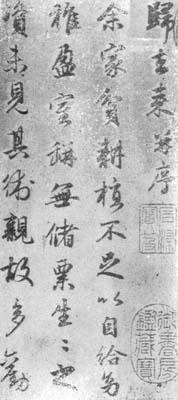 歸去來并序
余家貧耕植不足以自給幼
稚盈室缾無儲粟生〻所
資未見其術親故多勸
御書房鑑藏寶